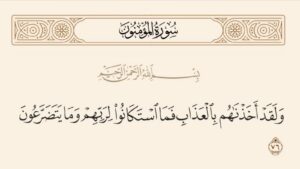 سُورَةُ المُؤۡمِنُونَ
بِسۡمِ ٱللَّهِ ٱلرَّحۡمَٰنِ ٱلرَّحِيمِ
وَلَقَدۡ أَخَذۡنَٰهُم بِٱلۡعَذَابِ فَمَا ٱسۡتَكَانُواْ لِرَبِّهِمۡ وَمَا يَتَضَرَّعُونَ
٧٦